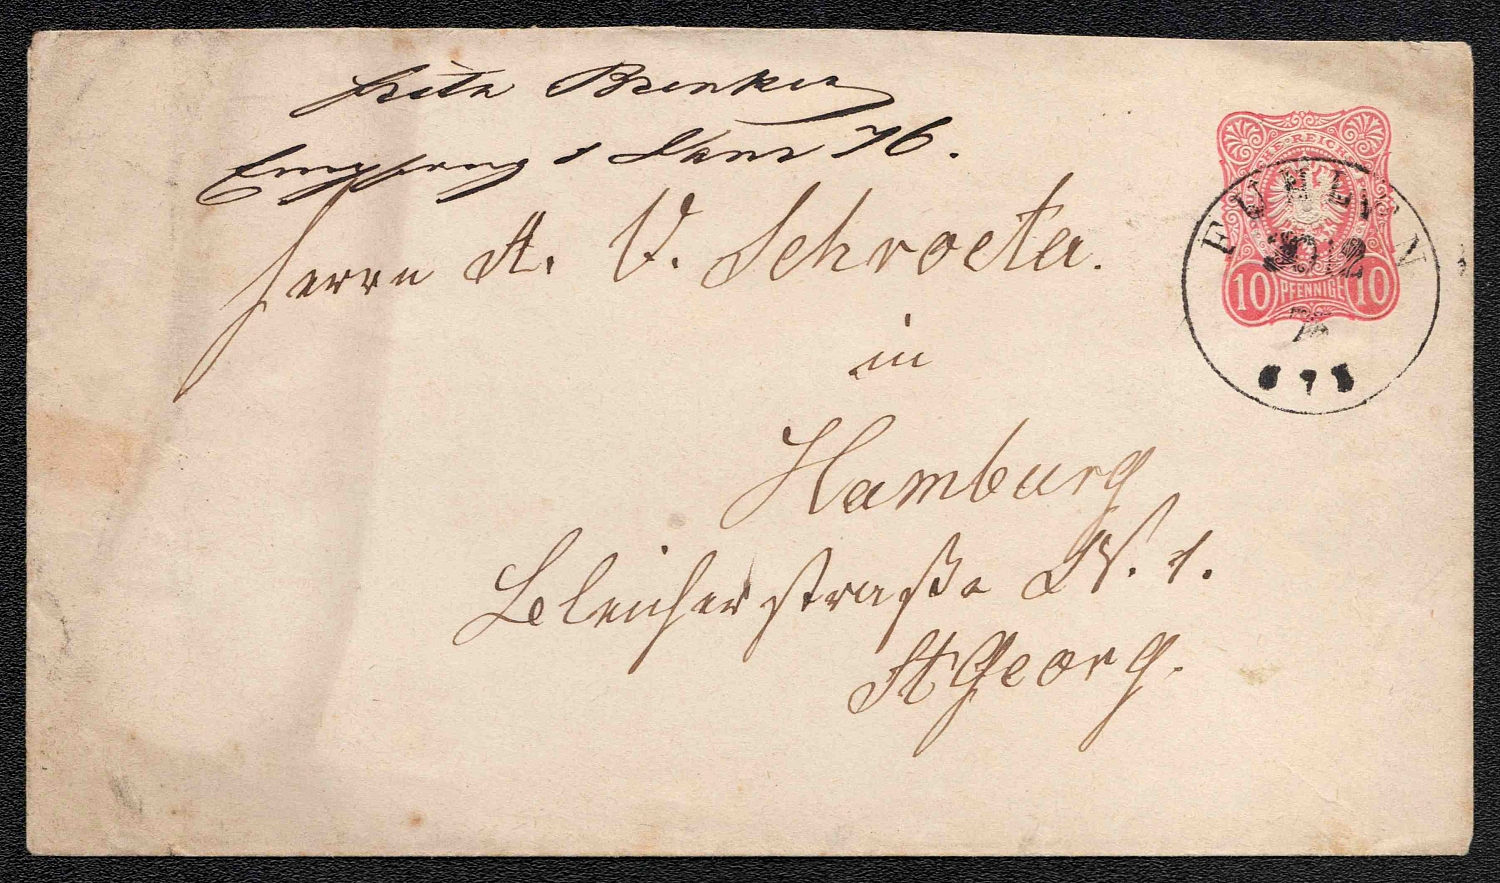 Fritz Brenken
Empfang 1 Jann 76.
Herrn A. V. Schroeter.
in
Hamburg
Bleicherstraße W. 1.
St Georg.
REICH
10 PFENNIGE 10